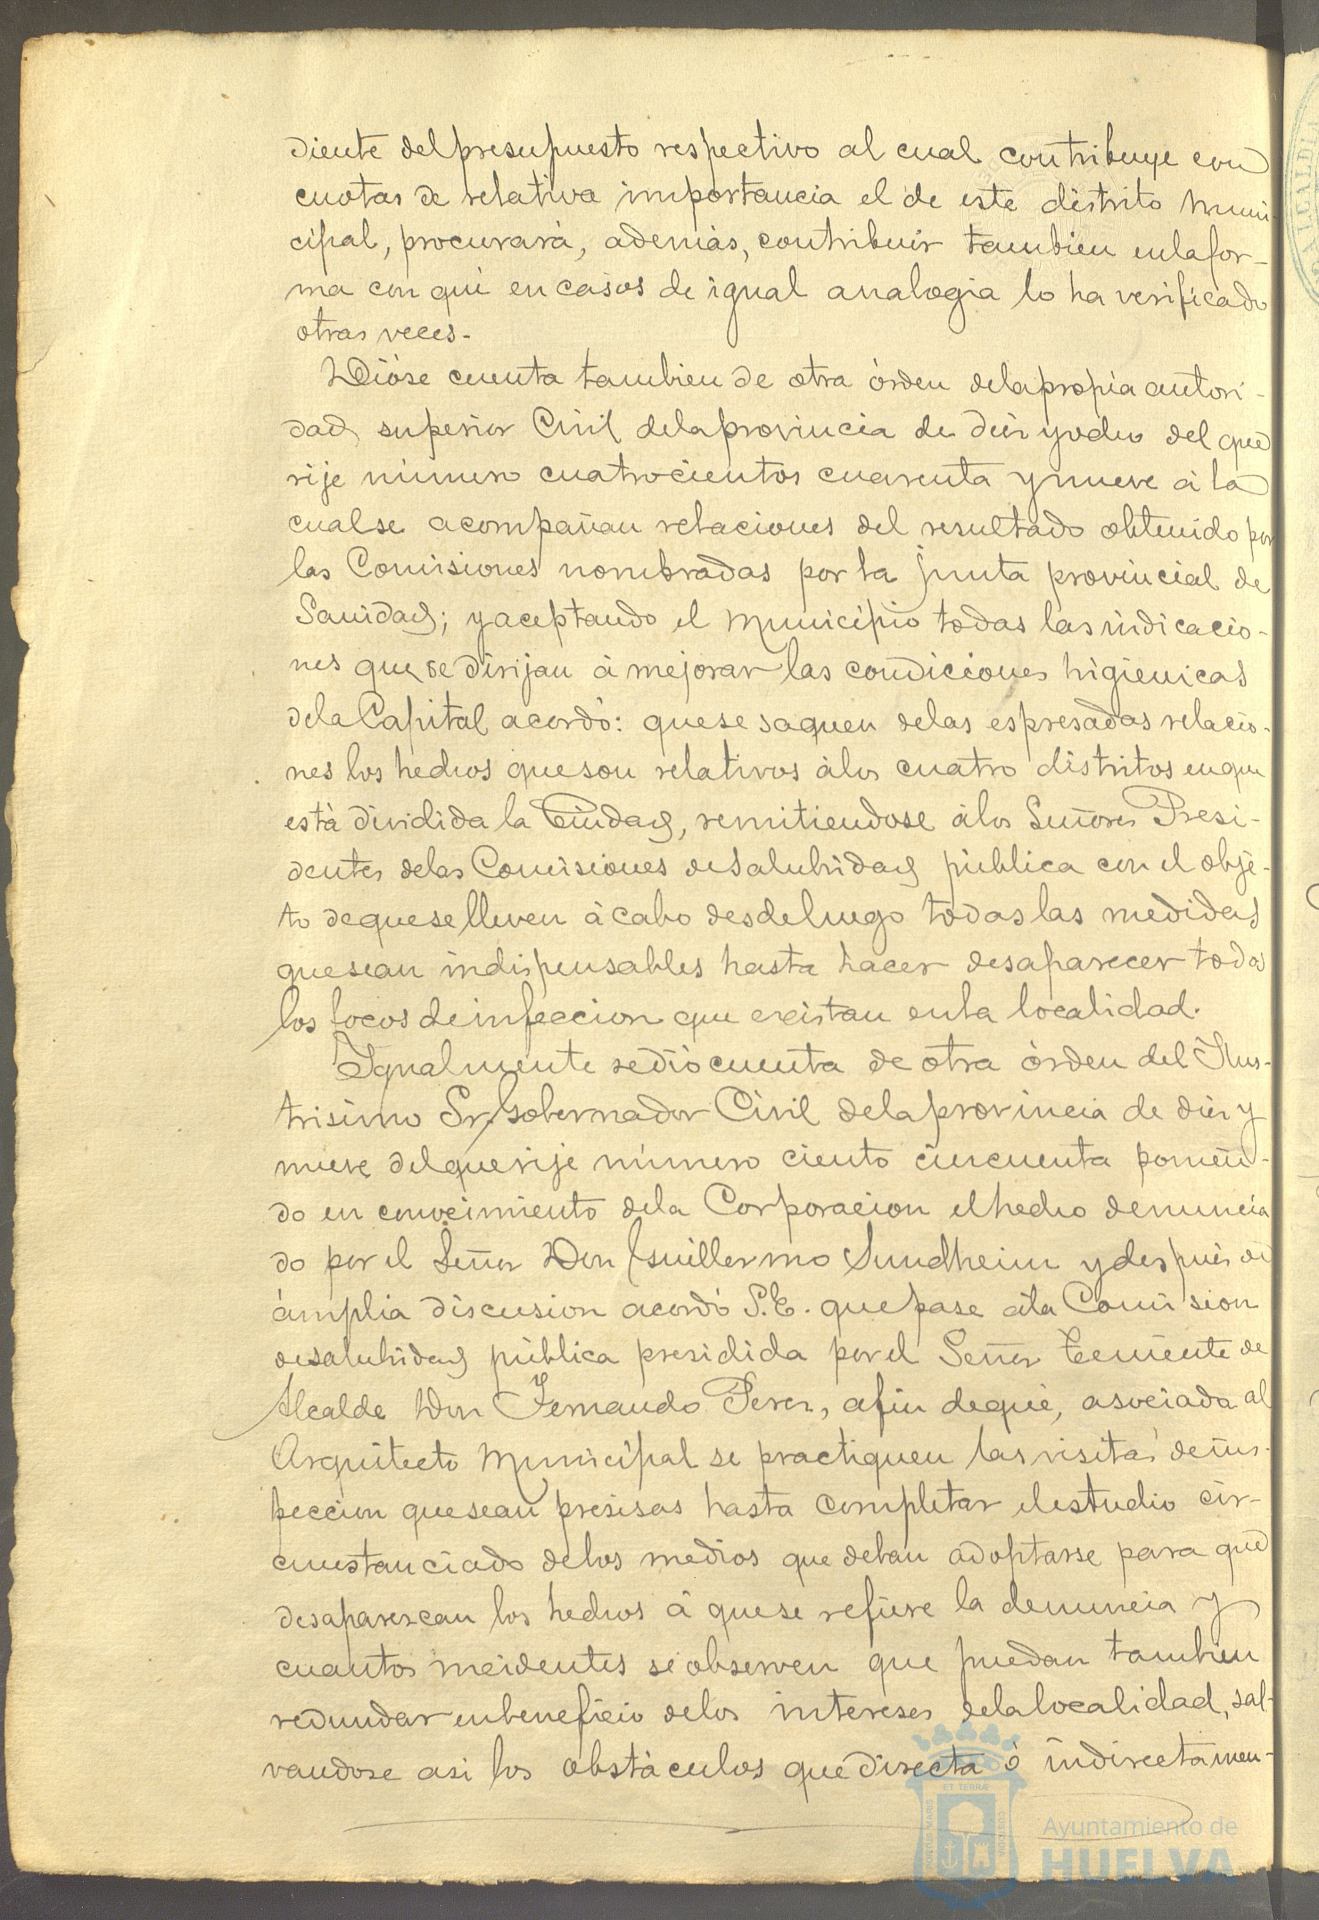 diente del presupuesto respectivo al cual contribuye con
cuotas de relativa importancia el de este distrito muni-
cipal, procurará, además, contribuir tambien en la for-
ma con que en casos de igual analogia lo ha verificado
otras veces.-
Dióse cuenta tambien de otra órden de la propia autori-
dad superior Civil de la provincia de diez y ocho del que
rije número cuatrocientos cuarenta y nueve á la
cual se acompañan relaciones del resultado obtenido por
las Comisiones nombradas por la junta provincial de
Sanidad; y aceptando el municipio todas las indicacio-
nes que se dirijan á mejorar las condiciones higienicas
de la Capital acordó: que se saquen de las espresadas relacio-
nes los hechos que son relativos á los cuatro distritos en que
está dividida la Ciudad, remitiendose á los Señores Presi-
dentes de las Comisiones de Salubridad pública con el obje-
to de que se lleven á cabo desde luego todas las medidas
que sean indispensables hasta hacer desaparecer todos
los focos de infeccion que existan en la localidad.
Igualmente se dió cuenta de otra órden del Ilus-
trisimo Sr. Gobernador Civil de la provincia de diez y
nueve del que rije número ciento cincuenta ponien-
do en conocimiento de la Corporacion el hecho denuncia
do por el Señor Don Guillermo Sundheim y despues de
ámplia discusion acordó S.E. que pase á la Comision
de salubridad pública presidida por el Señor Teniente de
Alcalde Don Fernando Perez, a fin de que, asociada al
Arquitecto Municipal se practiquen las visitas de ins-
peccion que sean presisas hasta completar el estudio cir-
cunstanciado de los medios que deban adoptarse para que
desaparezcan los hechos á que se refiere la denuncia y
cuantos incidentes se observen que puedan tambien
redundar en beneficio de los intereses de la localidad, sal-
vandose asi los obstáculos que directa ó indirectamen-
ET TERRÆ
Ayuntamiento de
HUELVA